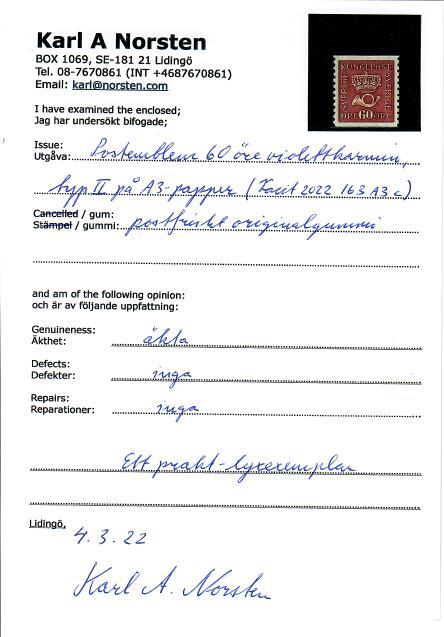 Karl A Norsten
BOX 1069, SE-181 21 Lidingö
Tel. 08-7670861 (INT +4687670861)
Email: karl@norsten.com
SVERIGE KUNGLPOST SVERIGE
ÖRE 60 ÖRE
I have examined the enclosed;
Jag har undersökt bifogade;
Issue:
Utgåva: Postemblem 60 öre violettkarmin,
typ II på A3-papper (Facit 2022 163 A3 c)
Cancelled / gum:
Stämpel / gummi: postfriskt originalgummi
and am of the following opinion:
och är av följande uppfattning:
Genuineness:
Äkthet: äkta
Defects:
Defekter: inga
Repairs:
Reparationer: inga
Ett prakt-lyxexemplar
Lidingö, 4.3.22
Karl A. Norsten